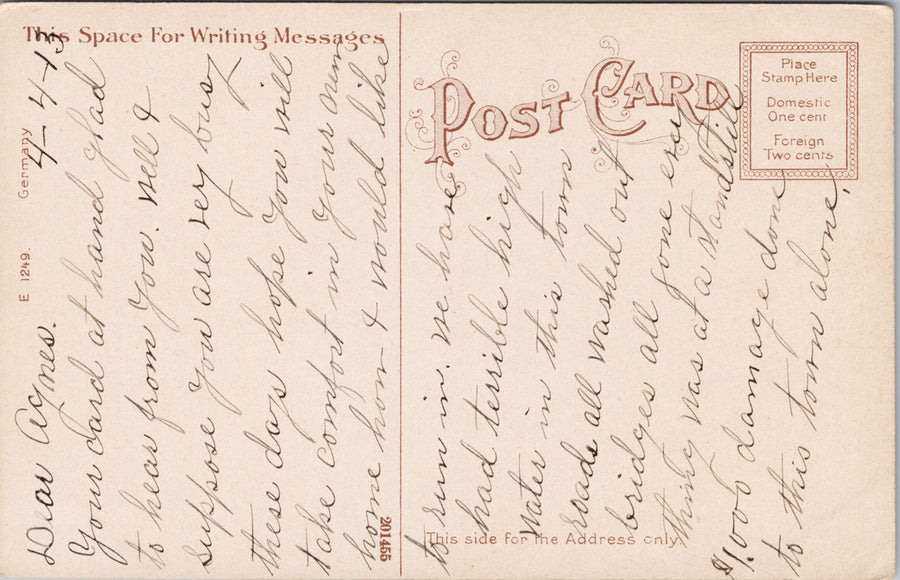 This Space For Writing Messages
POST CARD
Place
Stamp Here
Domestic
One cent
Foreign
Two cents
Germany
E 1249.
201455
This side for the Address only.
4-4-13
Dear Agnes.
Your card at hand glad
to hear from you. well &
suppose you are very busy
these days hope you will
take comfort in your own
home hon & would like
to run in. we have
had terrible high
water in this town
roads all washed out
bridges all gone every
thing was at a standstill
$1,000 damage done
to this town alone,